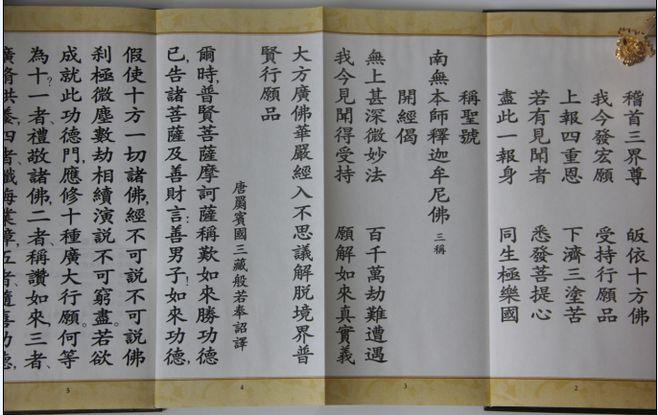 稽首三界尊　皈依十方佛
我今發宏願　受持行願品
上報四重恩　下濟三塗苦
若有見聞者　悉發菩提心
盡此一報身　同生極樂國
2
稱聖號
南無本師釋迦牟尼佛 三稱
開經偈
無上甚深微妙法　百千萬劫難遭遇
我今見聞得受持　願解如來真實義
3
大方廣佛華嚴經入不思議解脫境界普
賢行願品
唐罽賓國三藏般若奉詔譯
爾時，普賢菩薩摩訶薩稱歎如來勝功德
已，告諸菩薩及善財言：善男子！如來功德，
4
假使十方一切諸佛，經不可說不可說佛
剎極微塵數劫相續演說不可窮盡。若欲
成就此功德門，應修十種廣大行願。何等
為十？一者、禮敬諸佛，二者、稱讚如來，三者、
廣脩供養，四者、懺悔業障，五者、隨喜功德，
5